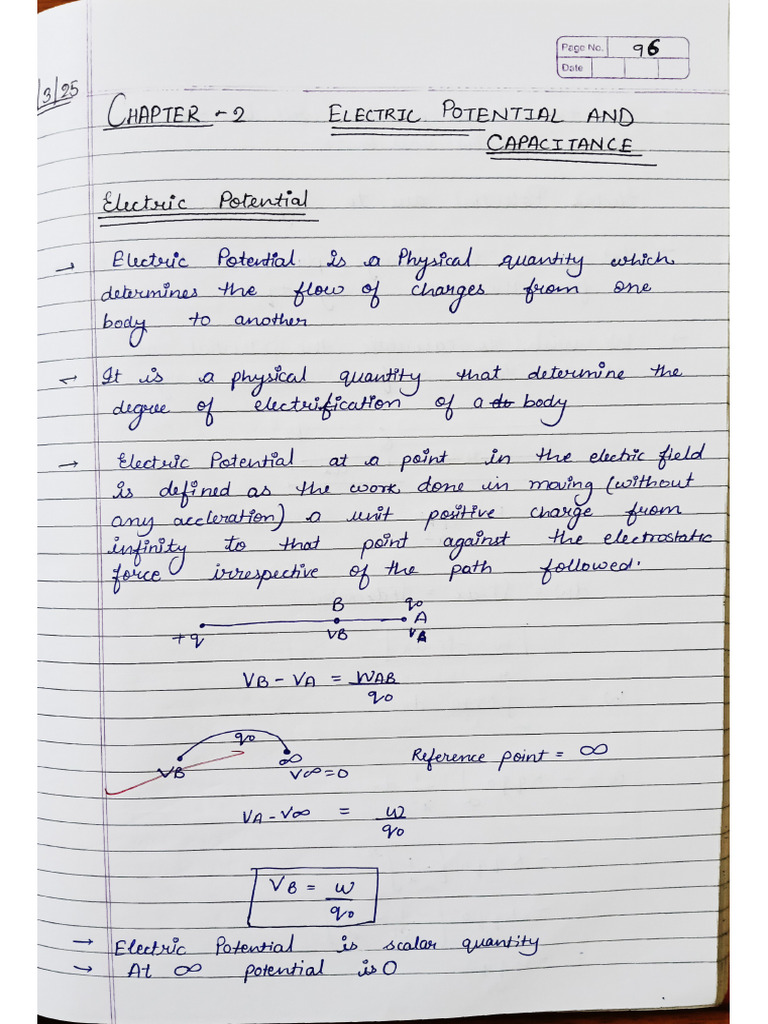 Page No. 96
Date
/3/25
CHAPTER - 2 ELECTRIC POTENTIAL AND
CAPACITANCE
Electric Potential
→ Electric Potential is a Physical quantity which
determines the flow of charges from one
body to another
→ It is a physical quantity that determine the
degree of electrification of a body
→ Electric Potential at a point in the electric field
is defined as the work done in moving (without
any accleration) a unit positive charge from
infinity to that point against the electrostatic
force irrespective of the path followed.
B q₀
+q VB A
VA
VB - VA = WAB
q₀
q₀
VB ∞ Reference point = ∞
V∞=0
VA - V∞ = w
q₀
VB = w
q₀
→ Electric Potential is scalar quantity
→ At ∞ potential is 0